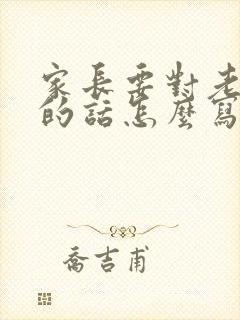 家長要對老
的話怎麼寫
喬吉甫